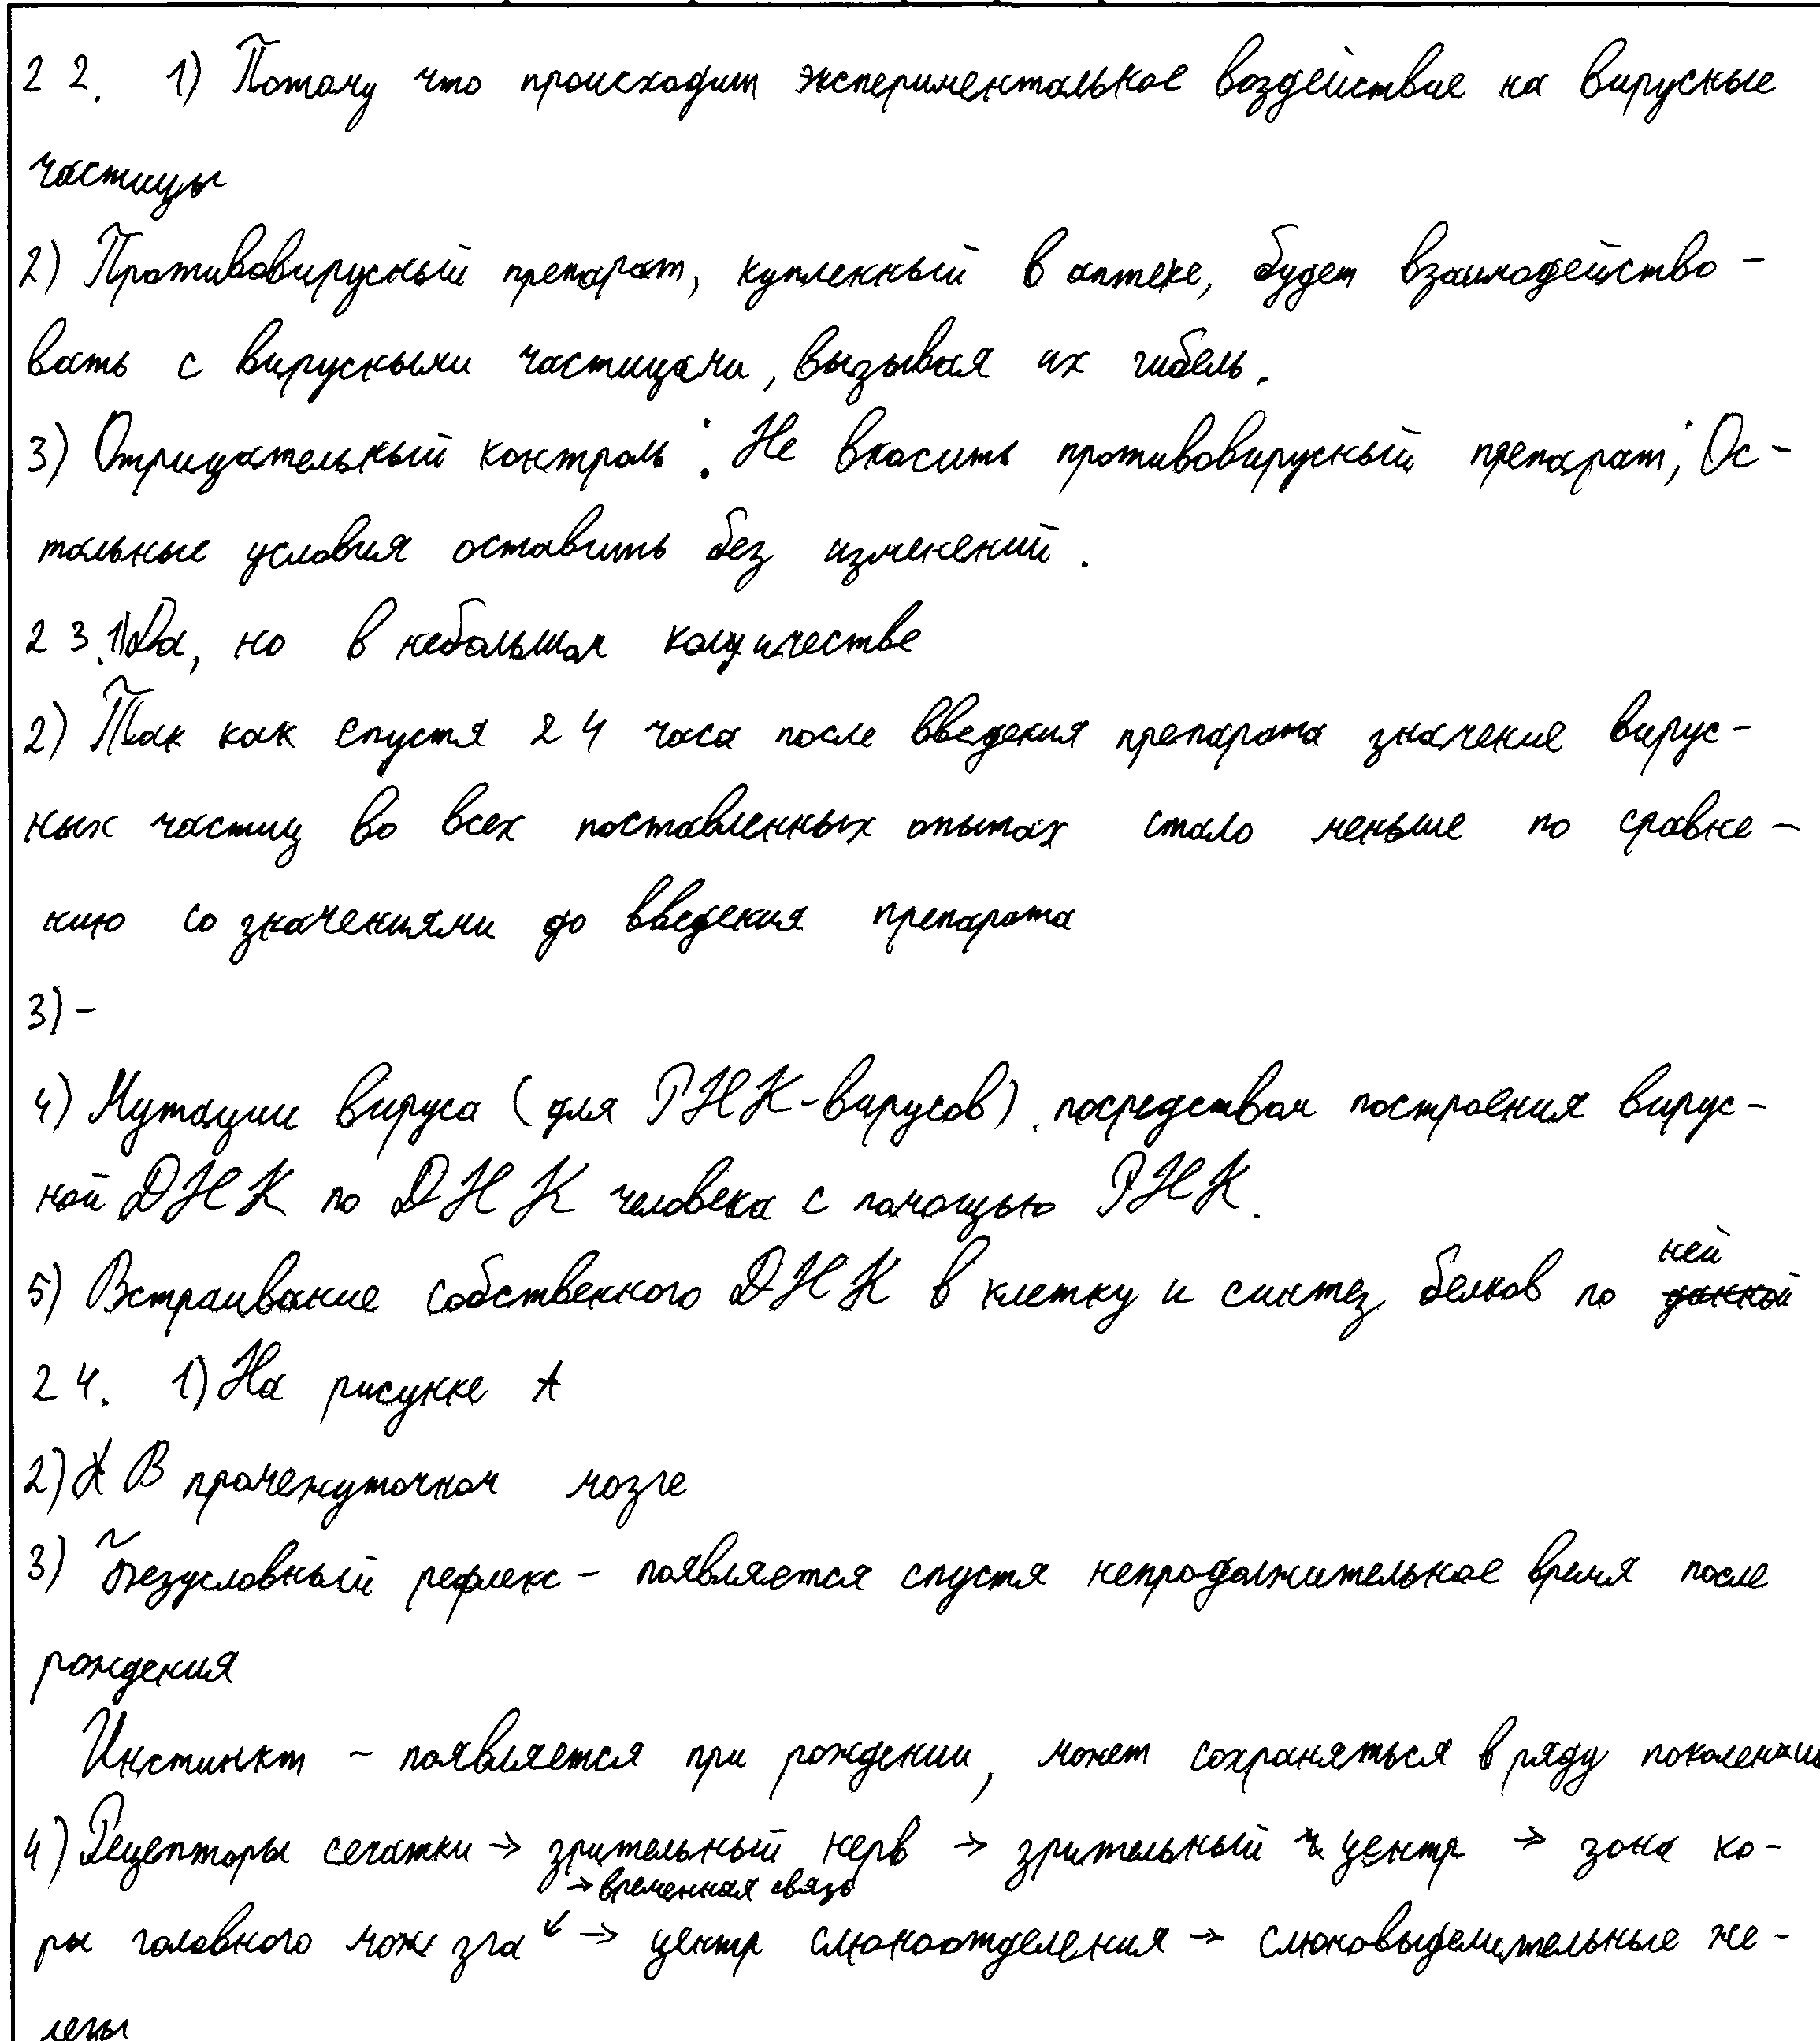 22. 1) Потому что происходит экспериментальное воздействие на вирусные
частицы
2) Противовирусный препарат, купленный в аптеке, будет взаимодейство-
вать с вирусными частицами, вызывая их гибель.
3) Отрицательный контроль: Не вносить противовирусный препарат; Ос-
тальные условия оставить без изменений.
23.1)Да, но в небольшом количестве
2) Так как спустя 24 часа после введения препарата значение вирус-
ных частиц во всех поставленных опытах стало меньше по сравне-
нию со значениями до введения препарата
3)-
4) Мутации вируса (для РНК-вирусов) посредством построения вирус-
ной ДНК по ДНК человека с помощью РНК.
5) Встраивание собственного ДНК в клетку и синтез белков по ней
24. 1) На рисунке А
2) В промежуточном мозге
3) Безусловный рефлекс - появляется спустя непродолжительное время после
рождения
Инстинкт - появляется при рождении, может сохраняться в ряду поколений
4) Рецепторы сечатки → зрительный нерв → зрительный центр → зона ко-
→ временная связь
ры головного мозга → центр слюноотделения → слюновыделительные же-
лезы